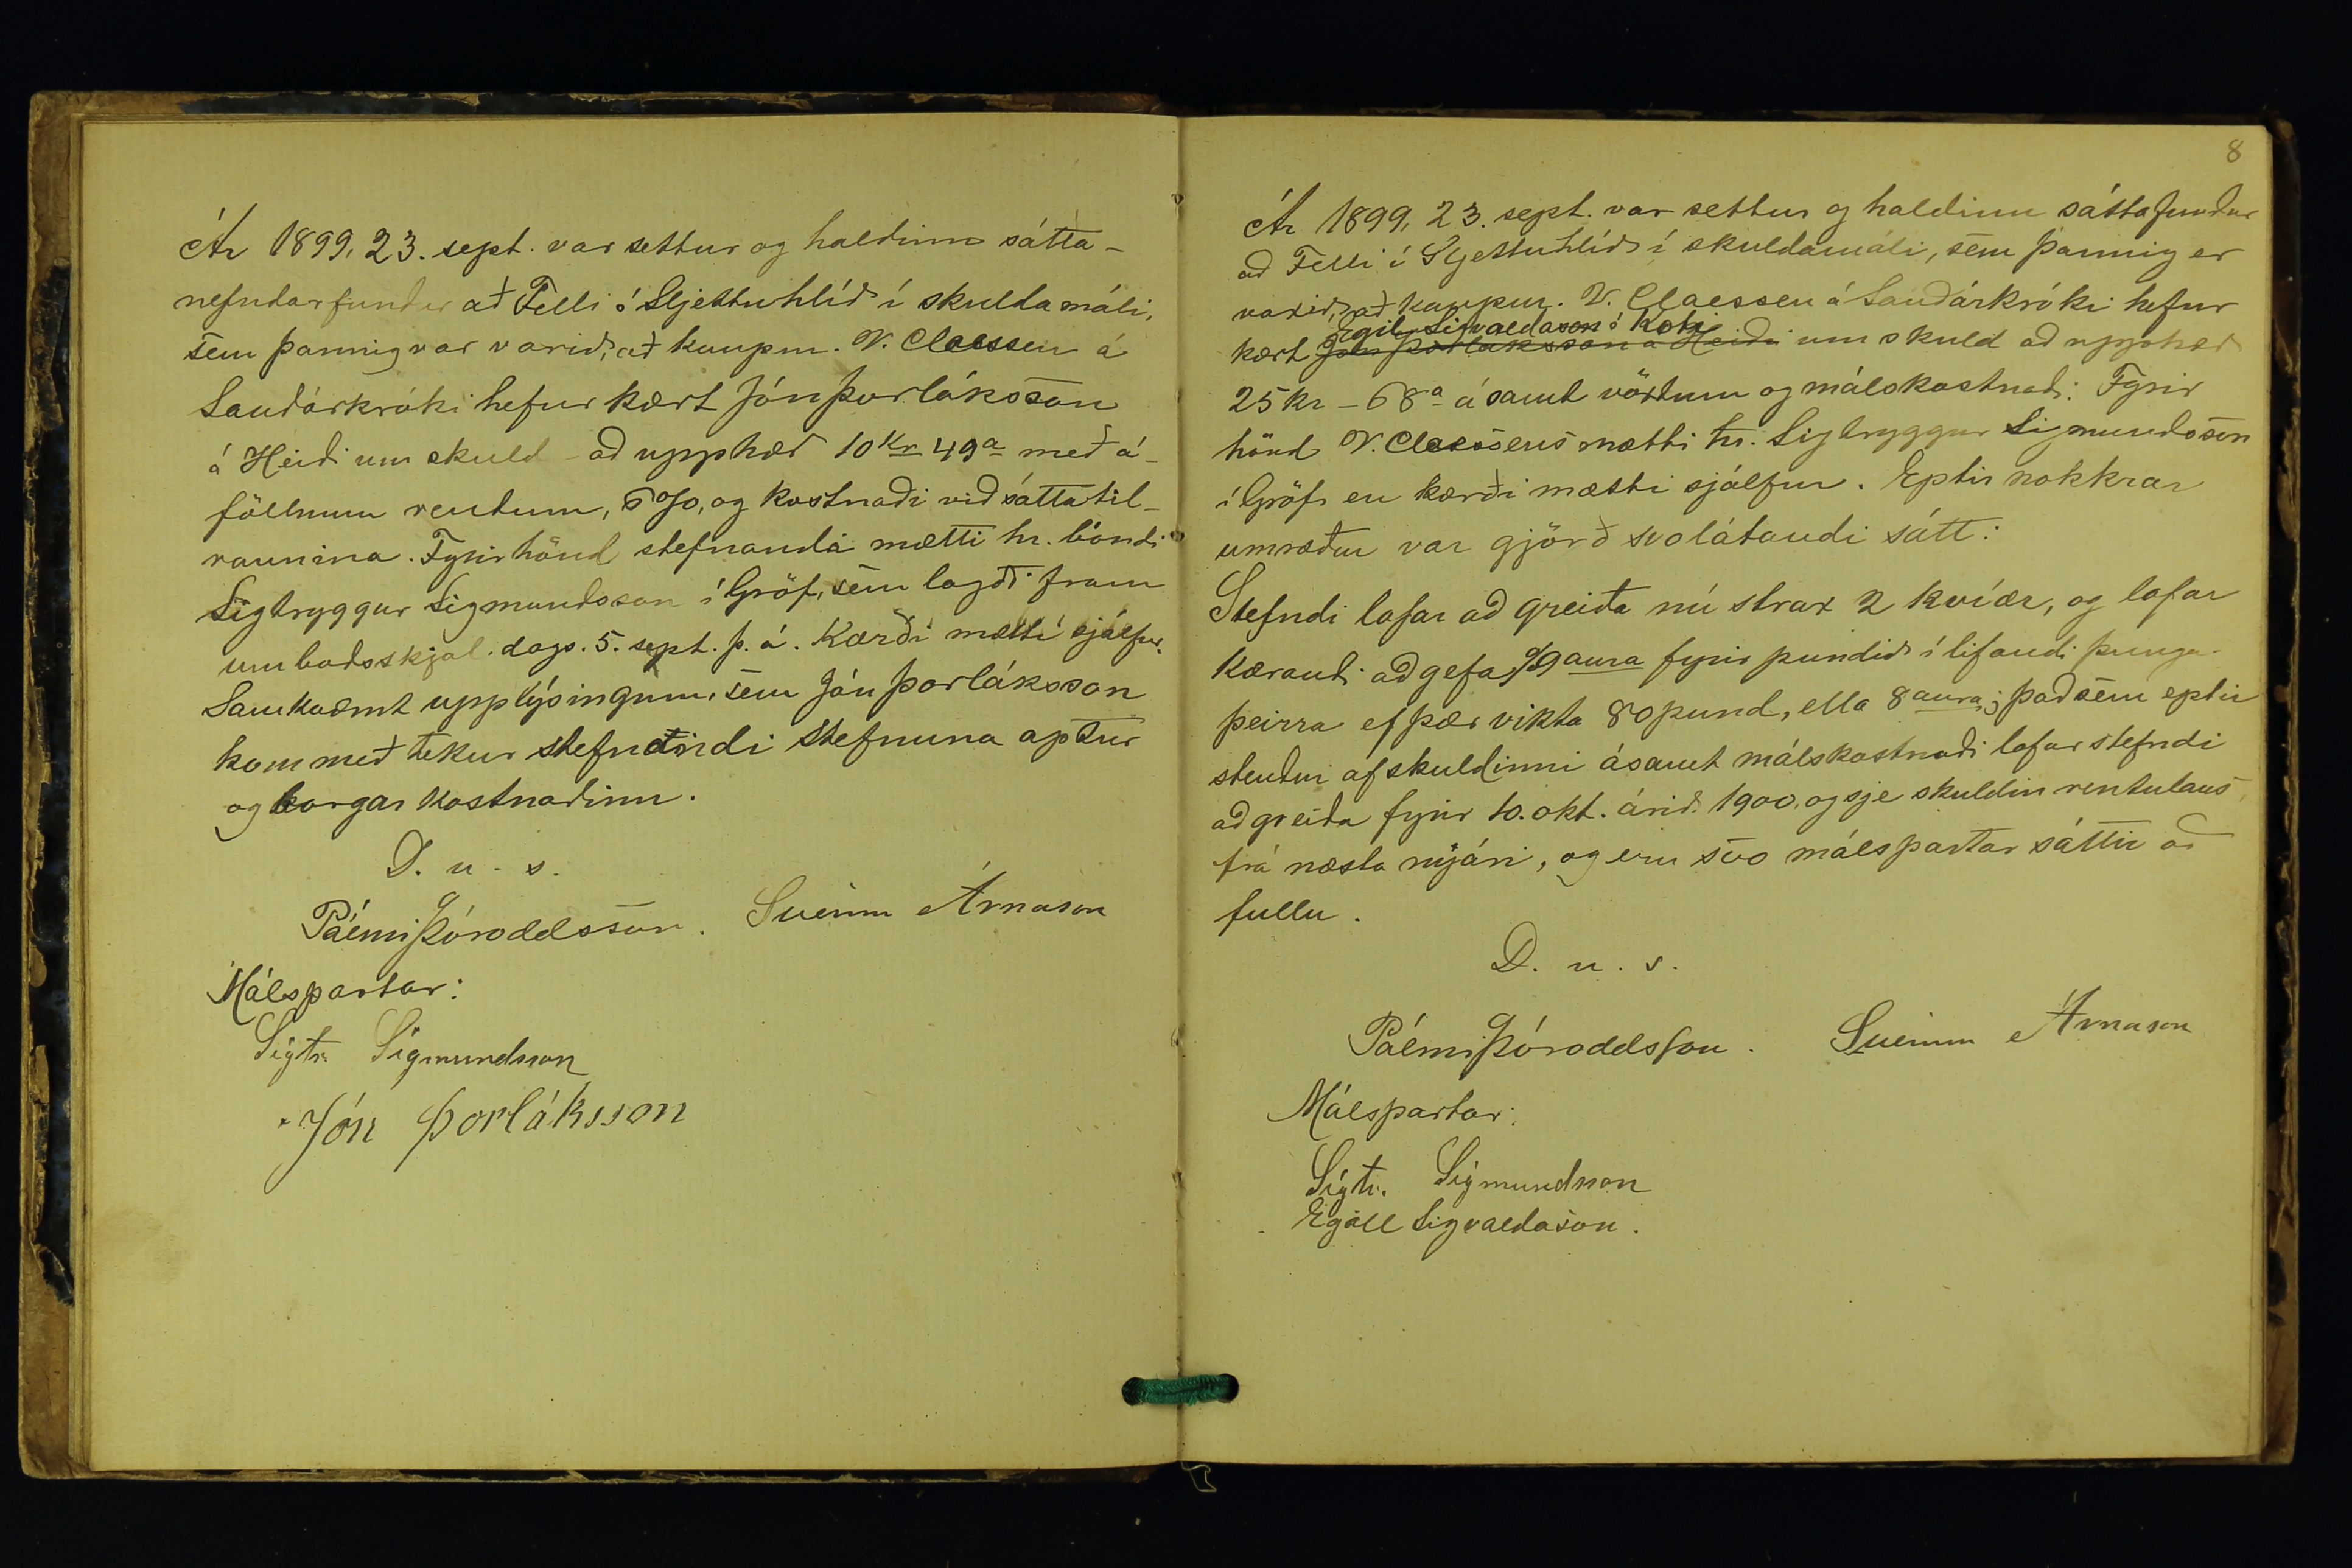 Ár 1899, 23. sept. var settur og haldinn sátta-
nefndarfundur að Felli í Sljettuhlíð í skuldamáli,
sem þannig var varið, að kaupm. V. Claessen á
Sauðárkróki hefur kært Jón Þorláksson
á Heiði um skuld að upphæð 10 Kr 49 a með á-
föllnum rentum, 6%, og kostnaði við sáttatil-
raunina. Fyrir hönd stefnanda mætti hr. bóndi
Sigtryggur Sigmundsson í Gröf, sem lagði fram
umboðsskjal dags. 5. sept. þ. á. Kærði mætti sjálfur.
Samkvæmt upplýsingum, sem Jón Þorláksson
kom með tekur stefnandi stefnuna aptur
og borgar kostnaðinn.
D. u. s.
Pálmi Þóroddsson. Sveinn Árnason
Málspartar:
Sigtr. Sigmundsson
Jón Þorláksson
8
Ár 1899, 23. sept. var settur og haldinn sáttafundur
að Felli í Sljettuhlíð í skuldamáli, sem þannig er
varið, að kaupm. V. Claessen á Sauðárkróki hefur
Egil Sigvaldason í Koti
kært Jón Þorláksson á Heiði um skuld að upphæð
25 kr - 68 a ásamt vöxtum og málskostnaði. Fyrir
hönd V. Claessens mætti hr. Sigtryggur Sigmundsson
í Gröf en kærði mætti sjálfur. Eptir nokkrar
umræður var gjörð svolátandi sátt:
Stefndi lofar að greiða nú strax 2 kvíær, og lofar
kærandi að gefa 9 aura fyrir pundið í lifandi þunga
þeirra ef þær vikta 80 pund, ella 8 aura; það sem eptir
stendur af skuldinni ásamt málskostnaði lofar stefndi
að greiða fyrir 10. okt. árið 1900, og sje skuldin rentulaus
frá næsta nýjári, og eru svo málspartar sáttir að
fullu.
D. u. s.
Pálmi Þóroddsson. Sveinn Árnason
Málspartar:
Sigtr. Sigmundsson
Egill Sigvaldason.